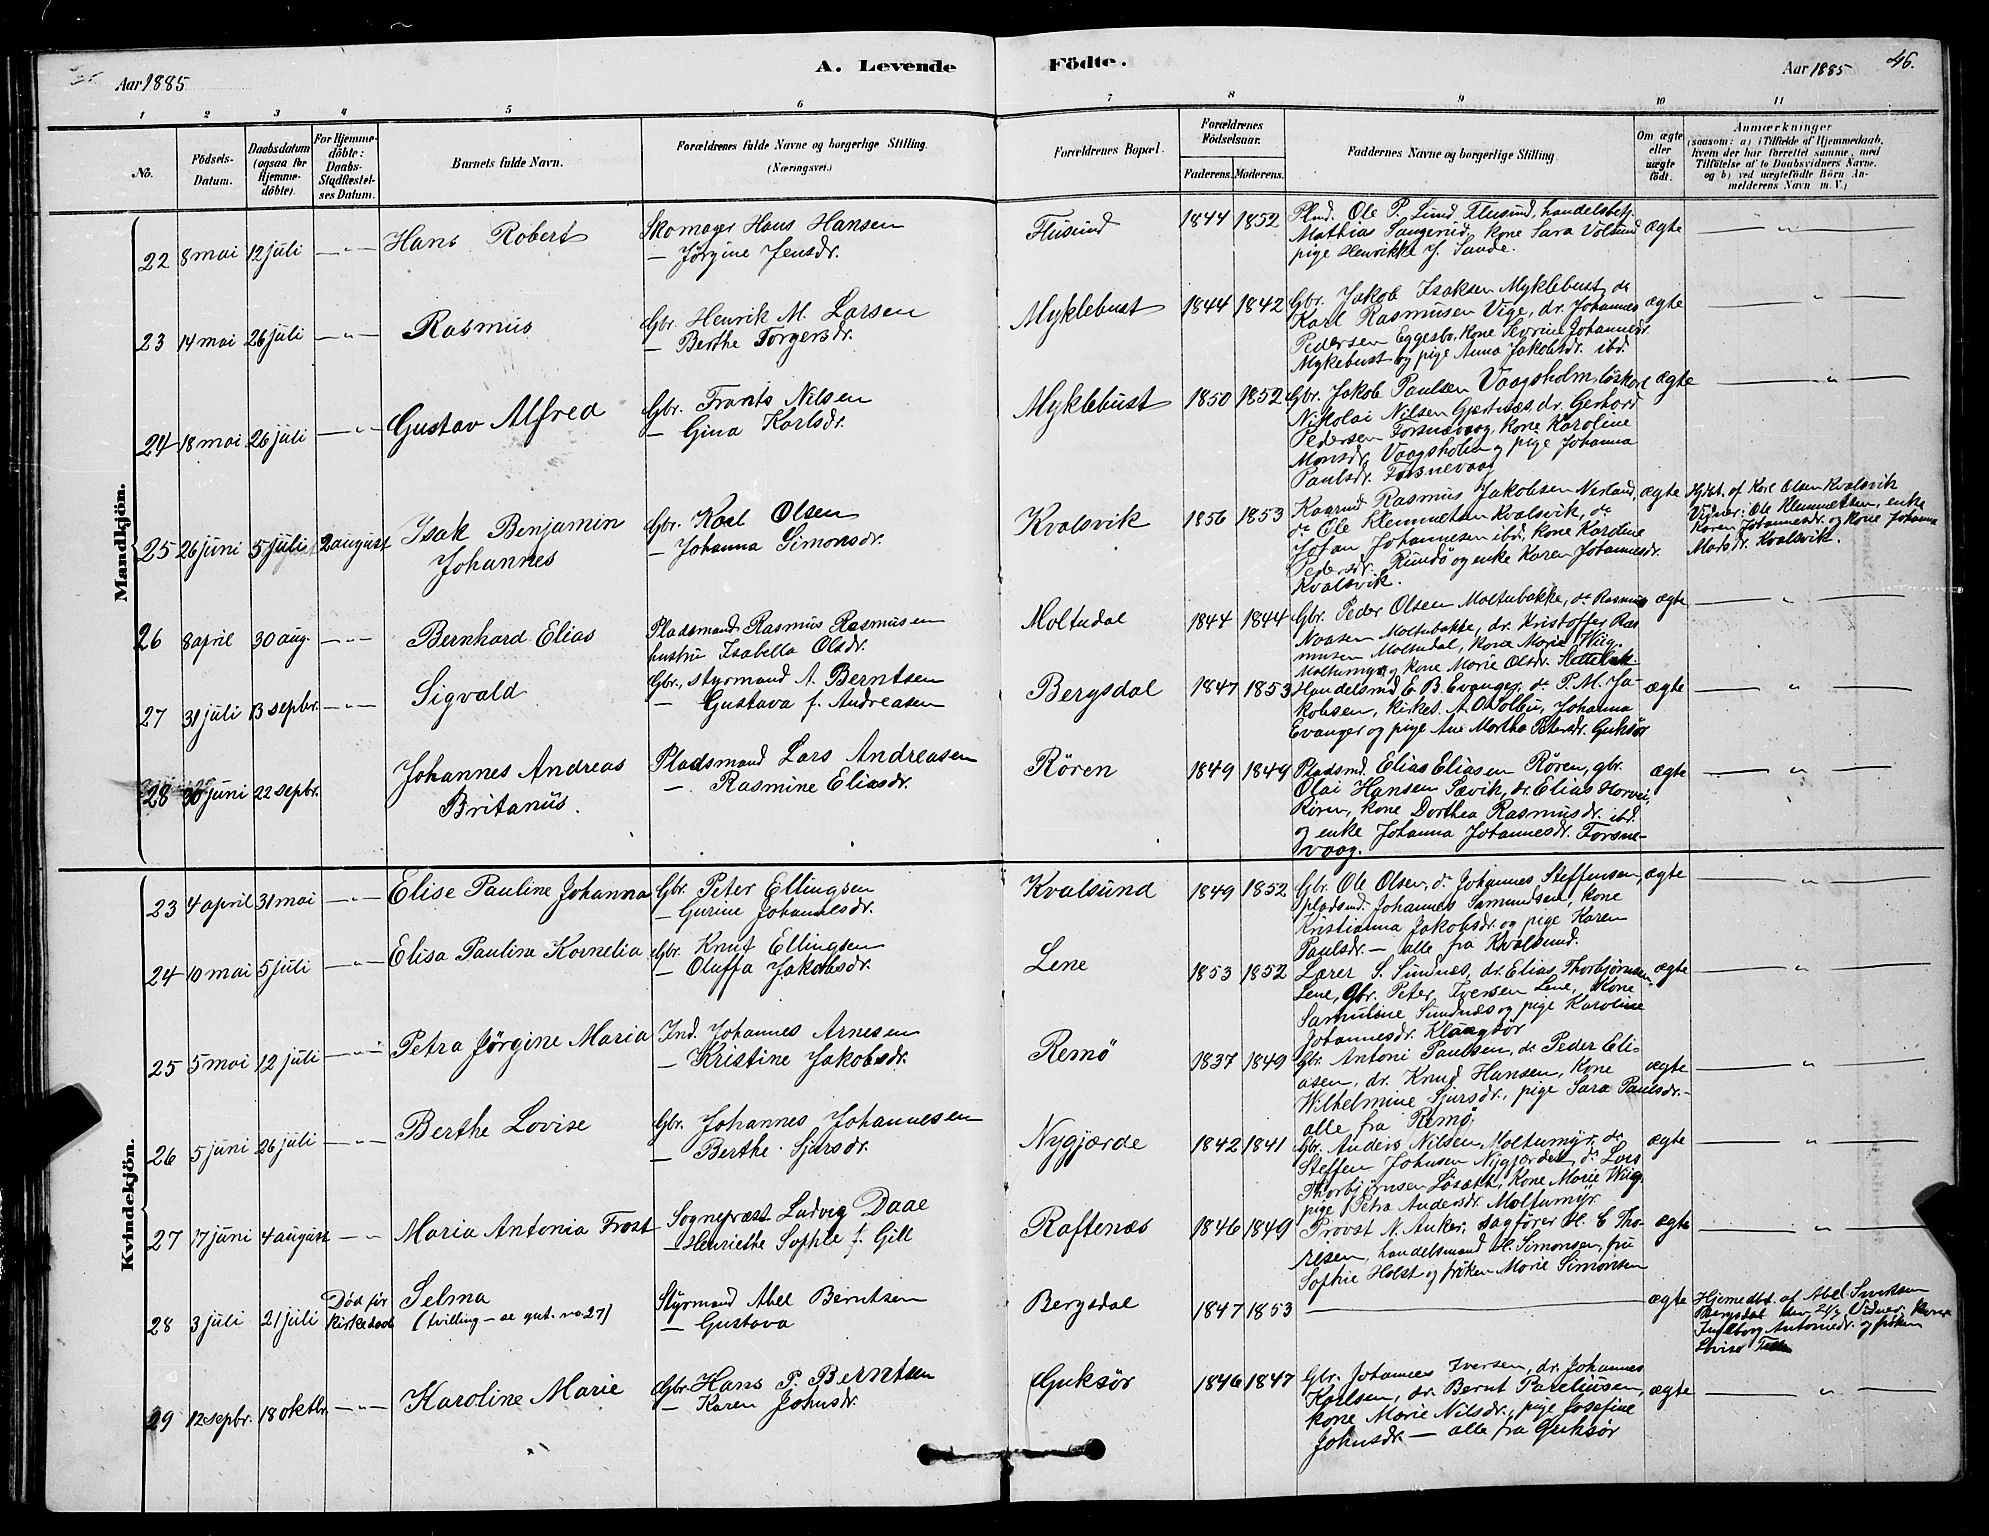 Aar 1885
A. Levende
Födte.
Aar 1885
46.
1 2 3 4 5 6 7 8 9 10 11
No.
Födsels-Datum.
Daabsdatum (ogsaa for Hjemme-döbte).
For Hjemme-döbte: Daabs-Stadfæstel-ses Datum.
Barnets fulde Navn.
Forældrenes fulde Navne og borgerlige Stilling. (Næringsvei.)
Forældrenes Bopæl.
Forældrenes Födselsaar.
Faderens. Moderens.
Faddernes Navne og borgerlige Stilling.
Om ægte eller uægte födt.
Anmærkninger
(saasom: a) i Tilfælde af Hjemmedaab,
hvem der har forrettet samme, med
Tilföielse af to Daabsvidners Navne.
og b) ved uægtefödte Börn An-
melderens Navn m. V.)
Mandkjön.
22 8 mai 12 juli — " — Hans Robert
Skomager Hans Hansen
— Jørgine Jensdr.
Flusund 1844 1852
Plmd. Ole P. Lund, Flusund, handelsbetj.
Mathias Sangerud, kone Sara Volsund
pige Henrikke J. Sande.
ægte — " —
23 14 mai 26 juli — " — Rasmus
Gbr. Henrik M. Larsen
— Berthe Torgersdr.
Myklebust 1844 1842
Gbr. Jakob Isaksen Myklebust, do
Karl Rasmusen Vige, dr. Johannes
Pedersen Eggesbø, kone Sevrine Johannesdr.
Mykebust og pige Anna Jakobsdr. ibd.
ægte — " —
24 18 mai 26 juli — " — Gustav Alfred
Gbr. Frants Nilsen
— Gina Karlsdr.
Myklebust 1850 1852
Gbr. Jakob Paulsen Vaagsholm, løskarl
Nikolai Nilsen Gjertnæs, dr. Gerhard
Pedersen Forsnævaag, kone Karoline
Monsdr. Vaagsholm og pige Johanna
Paulsdr. Forsnevaag
ægte — " —
25 26 juni 5 juli 2 august Isak Benjamin
Johannes
Gbr. Karl Olsen
— Johanna Simonsdr.
Kvalsvik 1856 1853
Kaarmd. Rasmus Jakobsen Nerland,
do Ole Klemmetsen Kvalsvik, do
Johan Johannesen ibd, kone Karoline
Pedersdr. Rundø og enke Karen Johannesdr.
Kvalsvik.
ægte
Hjdbt. af Karl Olsen Kvalsvik
Vidner: Ole Klemmetsen, enke
Karen Johannesdr. og kone Johanna
Madsdr. Kvalsvik.
26 8 april 30 aug. — " — Bernhard Elias
Pladsmand Rasmus Rasmusen
hustru Isabella Olsdr.
Moltudal 1844 1844
Gbr. Peder Olsen Moltubakke, do Rasmus
Naasen Moltubakke, dr. Kristoffer Ras
musen Moltudal, kone Marie Wiig
Moltumyr og kone Marie Olsdr.
ægte — " —
27 31 juli 13 sepbr. — " — Sigvald
Gbr., styrmand A. Berntsen
— Gustava f. Andreasen
Bergsdal 1847 1853
Handelsmd E. B. Evanger, do P. M. Ja-
kobsen, kirkes. A. O. Volbu, Johanna
Evanger og pige Ane Martha Petersdr. Guksør
ægte — " —
28 30 juni 22 sepbr. Johannes Andreas
Britanus.
Pladsmand Lars Andreasen
— Rasmine Eliasdr.
Røren 1849 1849
Pladsmd. Elias Eliasen Røren, gbr.
Olai Hansen Sævik, dr. Elias
Røren, kone Dorthea Rasmusdr. ibd.
og enke Johanna Johannesdr. Forsne-
vaag.
ægte — " —
Kvindekjön.
23 4 april 31 mai — " — Elise Pauline Johanna
Gbr. Peter Ellingsen
— Gurine Johannesdr.
Kvalsund 1849 1852
Gbr. Ole Olsen, do Johannes Steffensen,
pladsmd. Johannes Samundsen, kone
Kristianna Jakobsdr og pige Karen
Paulsdr. — alle fra Kvalsund.
ægte — " —
24 10 mai 5 juli — " — Elisa Paulina Kornelia
Gbr. Knut Ellingsen
— Oluffa Jakobsdr.
Lene 1853 1852
Lærer S. Sundnæs, dr. Elias Thorbjørnsen
Lene, Gbr. Peter Iversen Lene, kone
Samuline Sundnæs og pige Karoline
Johannesdr. Klungsør
ægte — " —
25 5 mai 12 juli — " — Petra Jørgine Maria
Ind. Johannes Arnesen
— Kristine Jakobsdr.
Remø 1837 1849
Gbr. Antoni Paulsen, do Peder Eli-
asen, dr. Knud Hansen, kone
Wilhelmine Sjursdr., pige Sara Paulsdr.—
alle fra Remø.
ægte — " —
26 5 juni 26 juli — " — Berthe Lovise
Gbr. Johannes Johannesen
— Berthe Sjursdr.
Nygjærde 1842 1841
Gbr. Anders Nilsen, Moltumyr, do
Steffen Johnsen Nygjærdet, do Lars
Thorbjørnsen Løsæth, kone Marie Wiig
pige Petra Andersdr. Moltumyr
ægte — " —
27 17 juni 4 august — " — Maria Antonia Frost
Sognepræst Ludvig Daae
— Henriethe Sophie f. Gill
Raftenæs 1846 1849
Provst N. Anker, sagfører H. C. Tho-
resen, handelsmand H. Simonsen, fru
Sophie Holst og frøken Marie Simonsen
ægte — " —
28 3 juli 21 juli Død før
kirkedaab Selma
(tvilling — se gut. no. 27)
Styrmand Abel Berntsen
— Gustava
Bergsdal 1847 1853 —
ægte
Hjemedbt. af Abel
Bergsdal den 21/7 Vidner, kone
Ingeborg Antonedr. og frøken
Lovise
29 12 sepbr. 18 oktbr. — " — Karoline Marie
Gbr. Hans P. Berntsen
— Karen Johnsdr.
Guksør 1846 1847
Gbr. Johannes Iversen, dr. Johannes
Karlsen, dr. Bernt Pareliusen,
kone Marie Nilsdr., pige Josefine
Johnsdr. — alle fra Guksør
ægte — " —